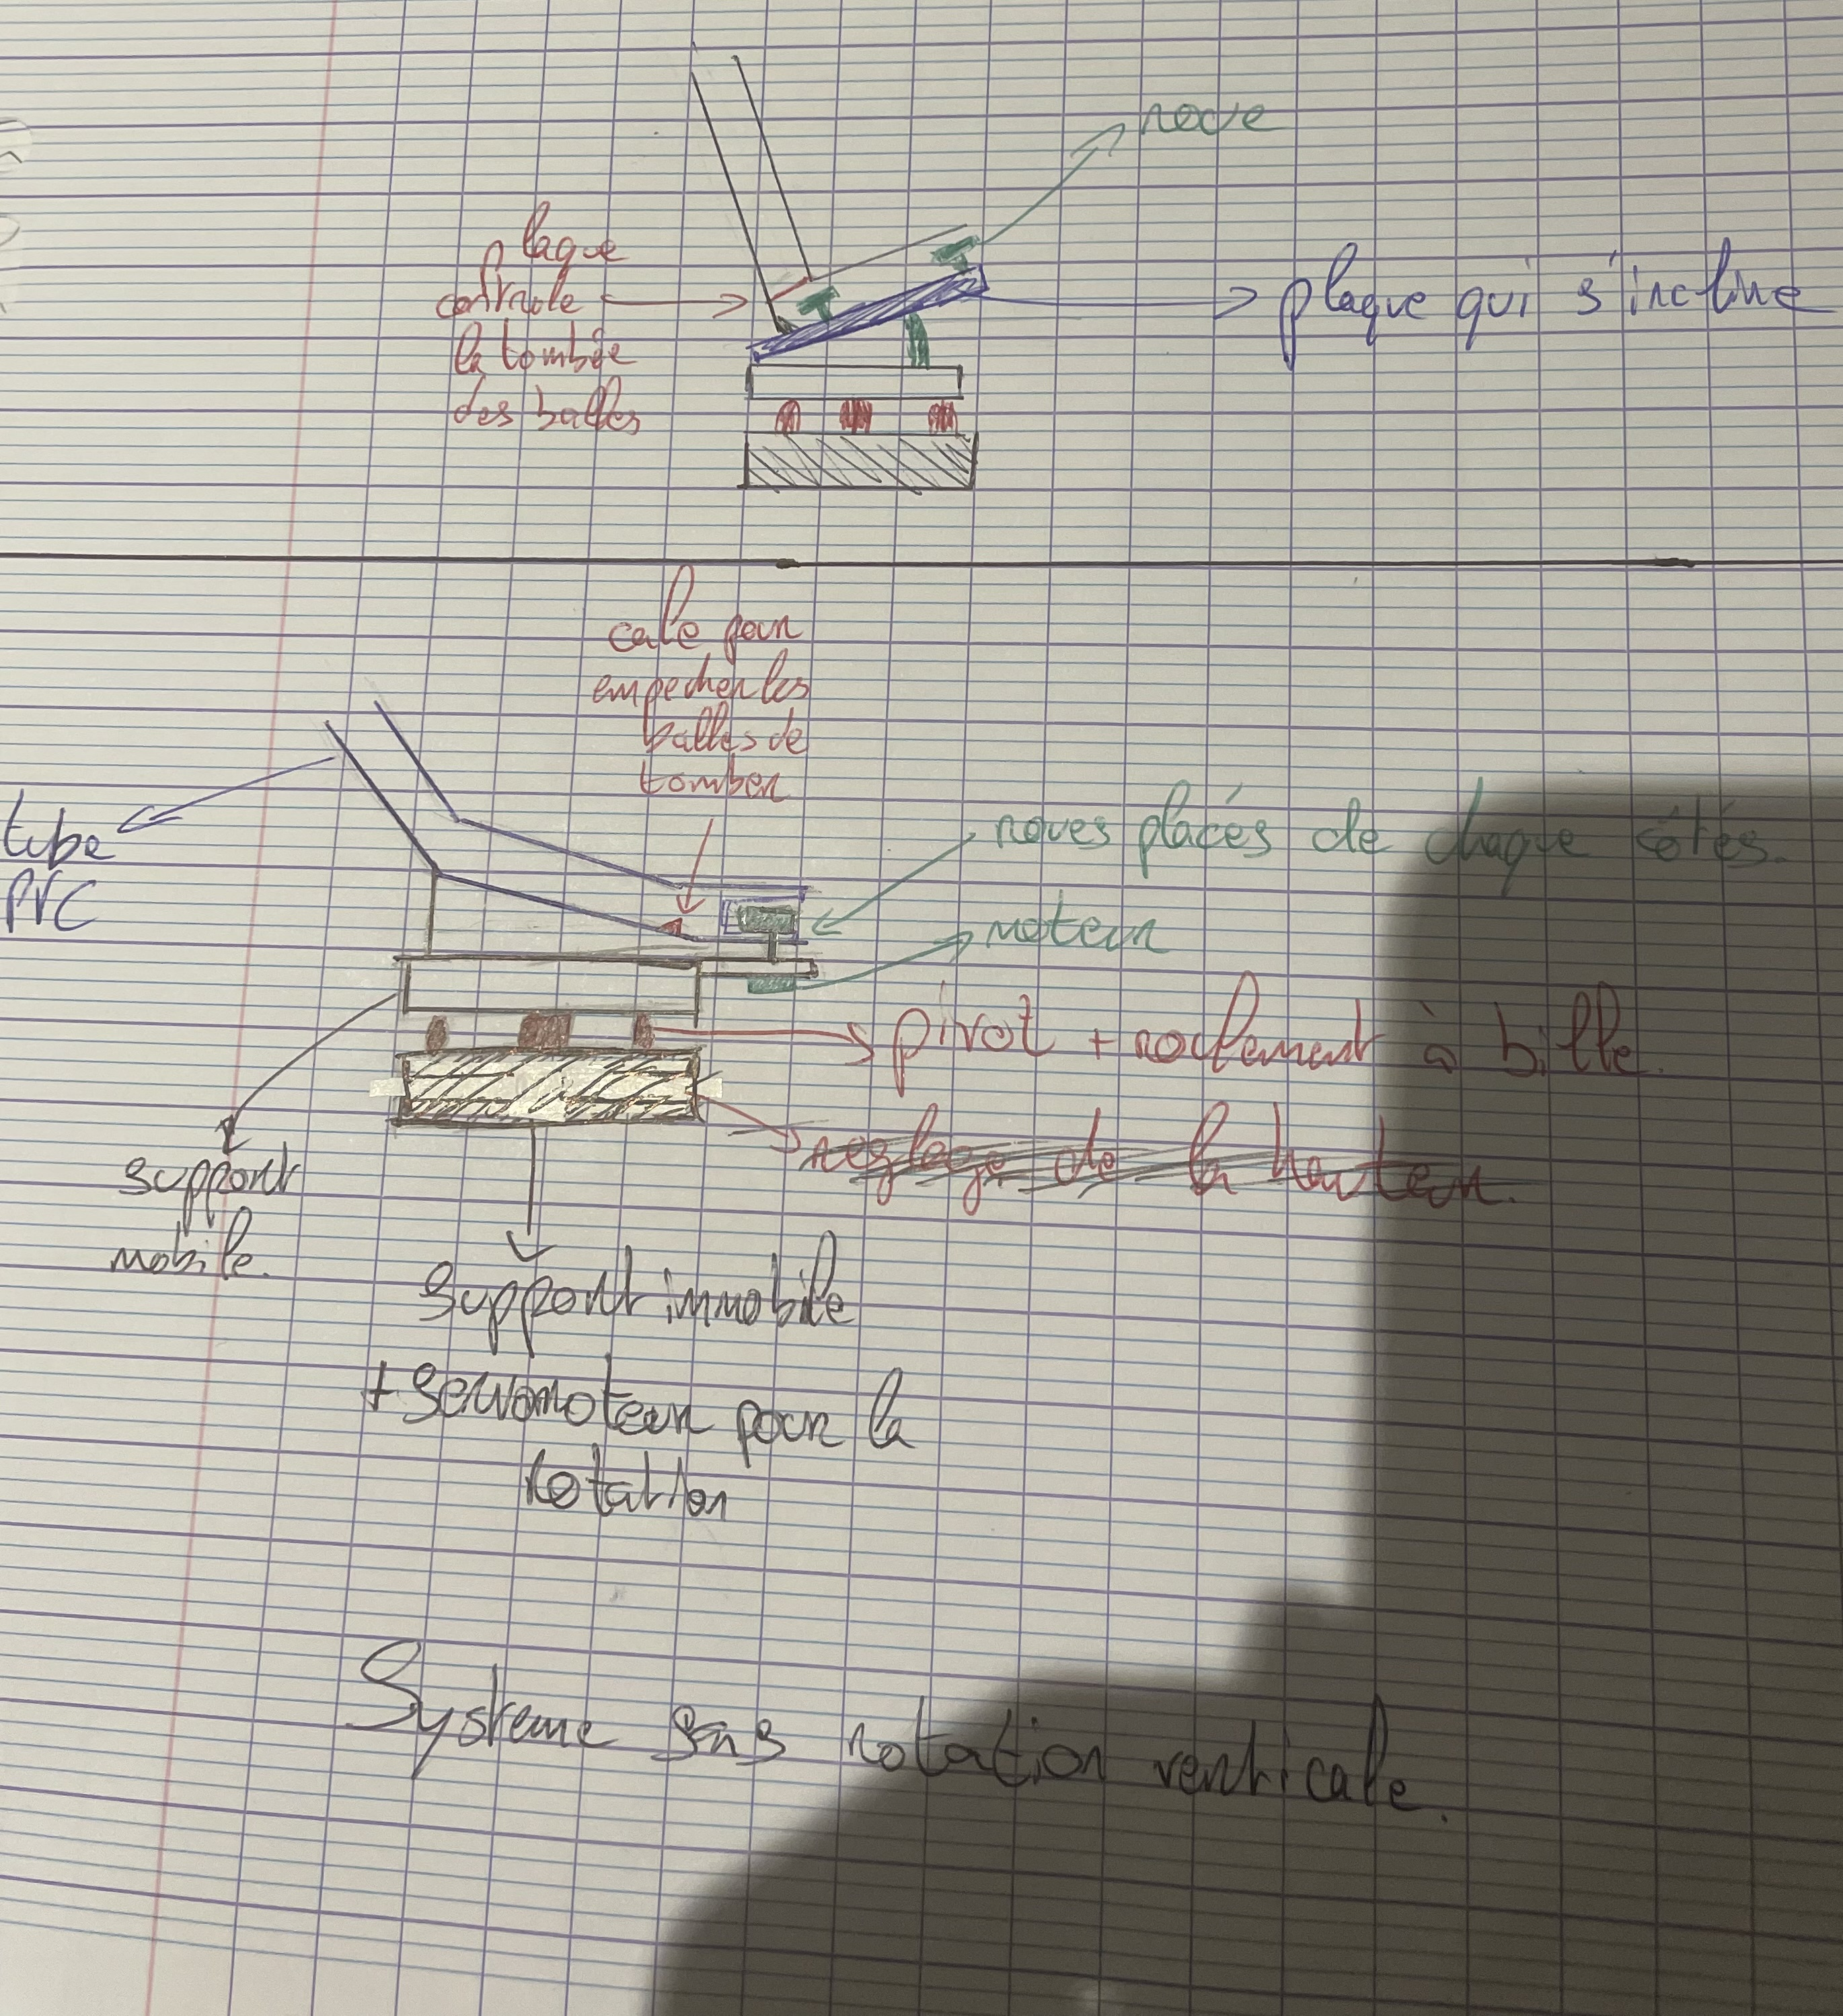 roue
plaque
controle
la tombée
des balles
plaque qui s'incline
cale pour
empecher les
balles de
tomber
tube
PVC
roues placés de chaque côtés.
moteur
pivot + roulement à bille.
reglage de la hauteur.
support
mobile.
Support immobile
+ servomoteur pour la
rotation
Systeme sans rotation verticale.